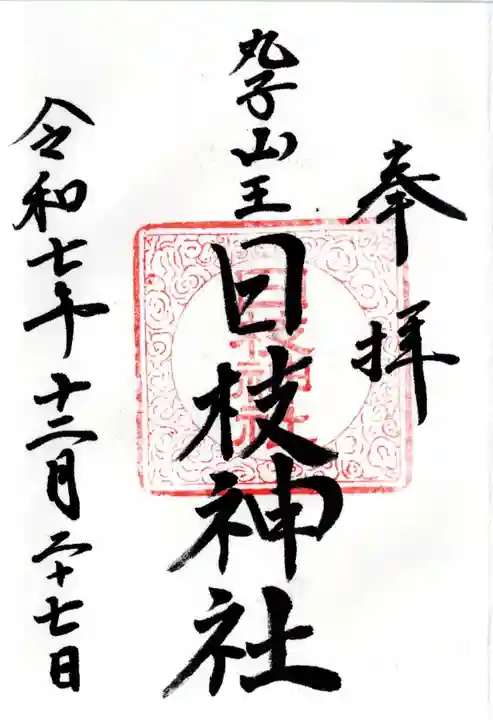 奉拝
丸子山王
日枝神社
日枝神社
令和七年十二月二十七日